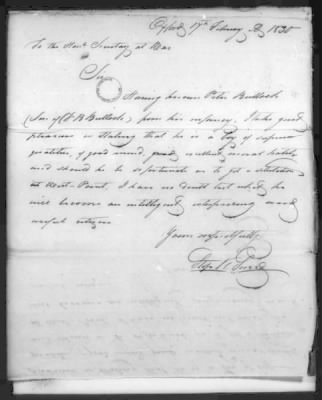 Oxford 17th February 1835
To the Honl. Secretary at War
Sir
Having known Peter Bullock
(Son of B Bullock) from his infancy, I take great
pleasure in stating that he is a Boy of superior
qualities, of good mind, excellent moral habits
and should he be so fortunate as to get a situation
at West-Point, I have no doubt but what he
will become an intelligent enterprising and
useful citizen
Yours respectfully